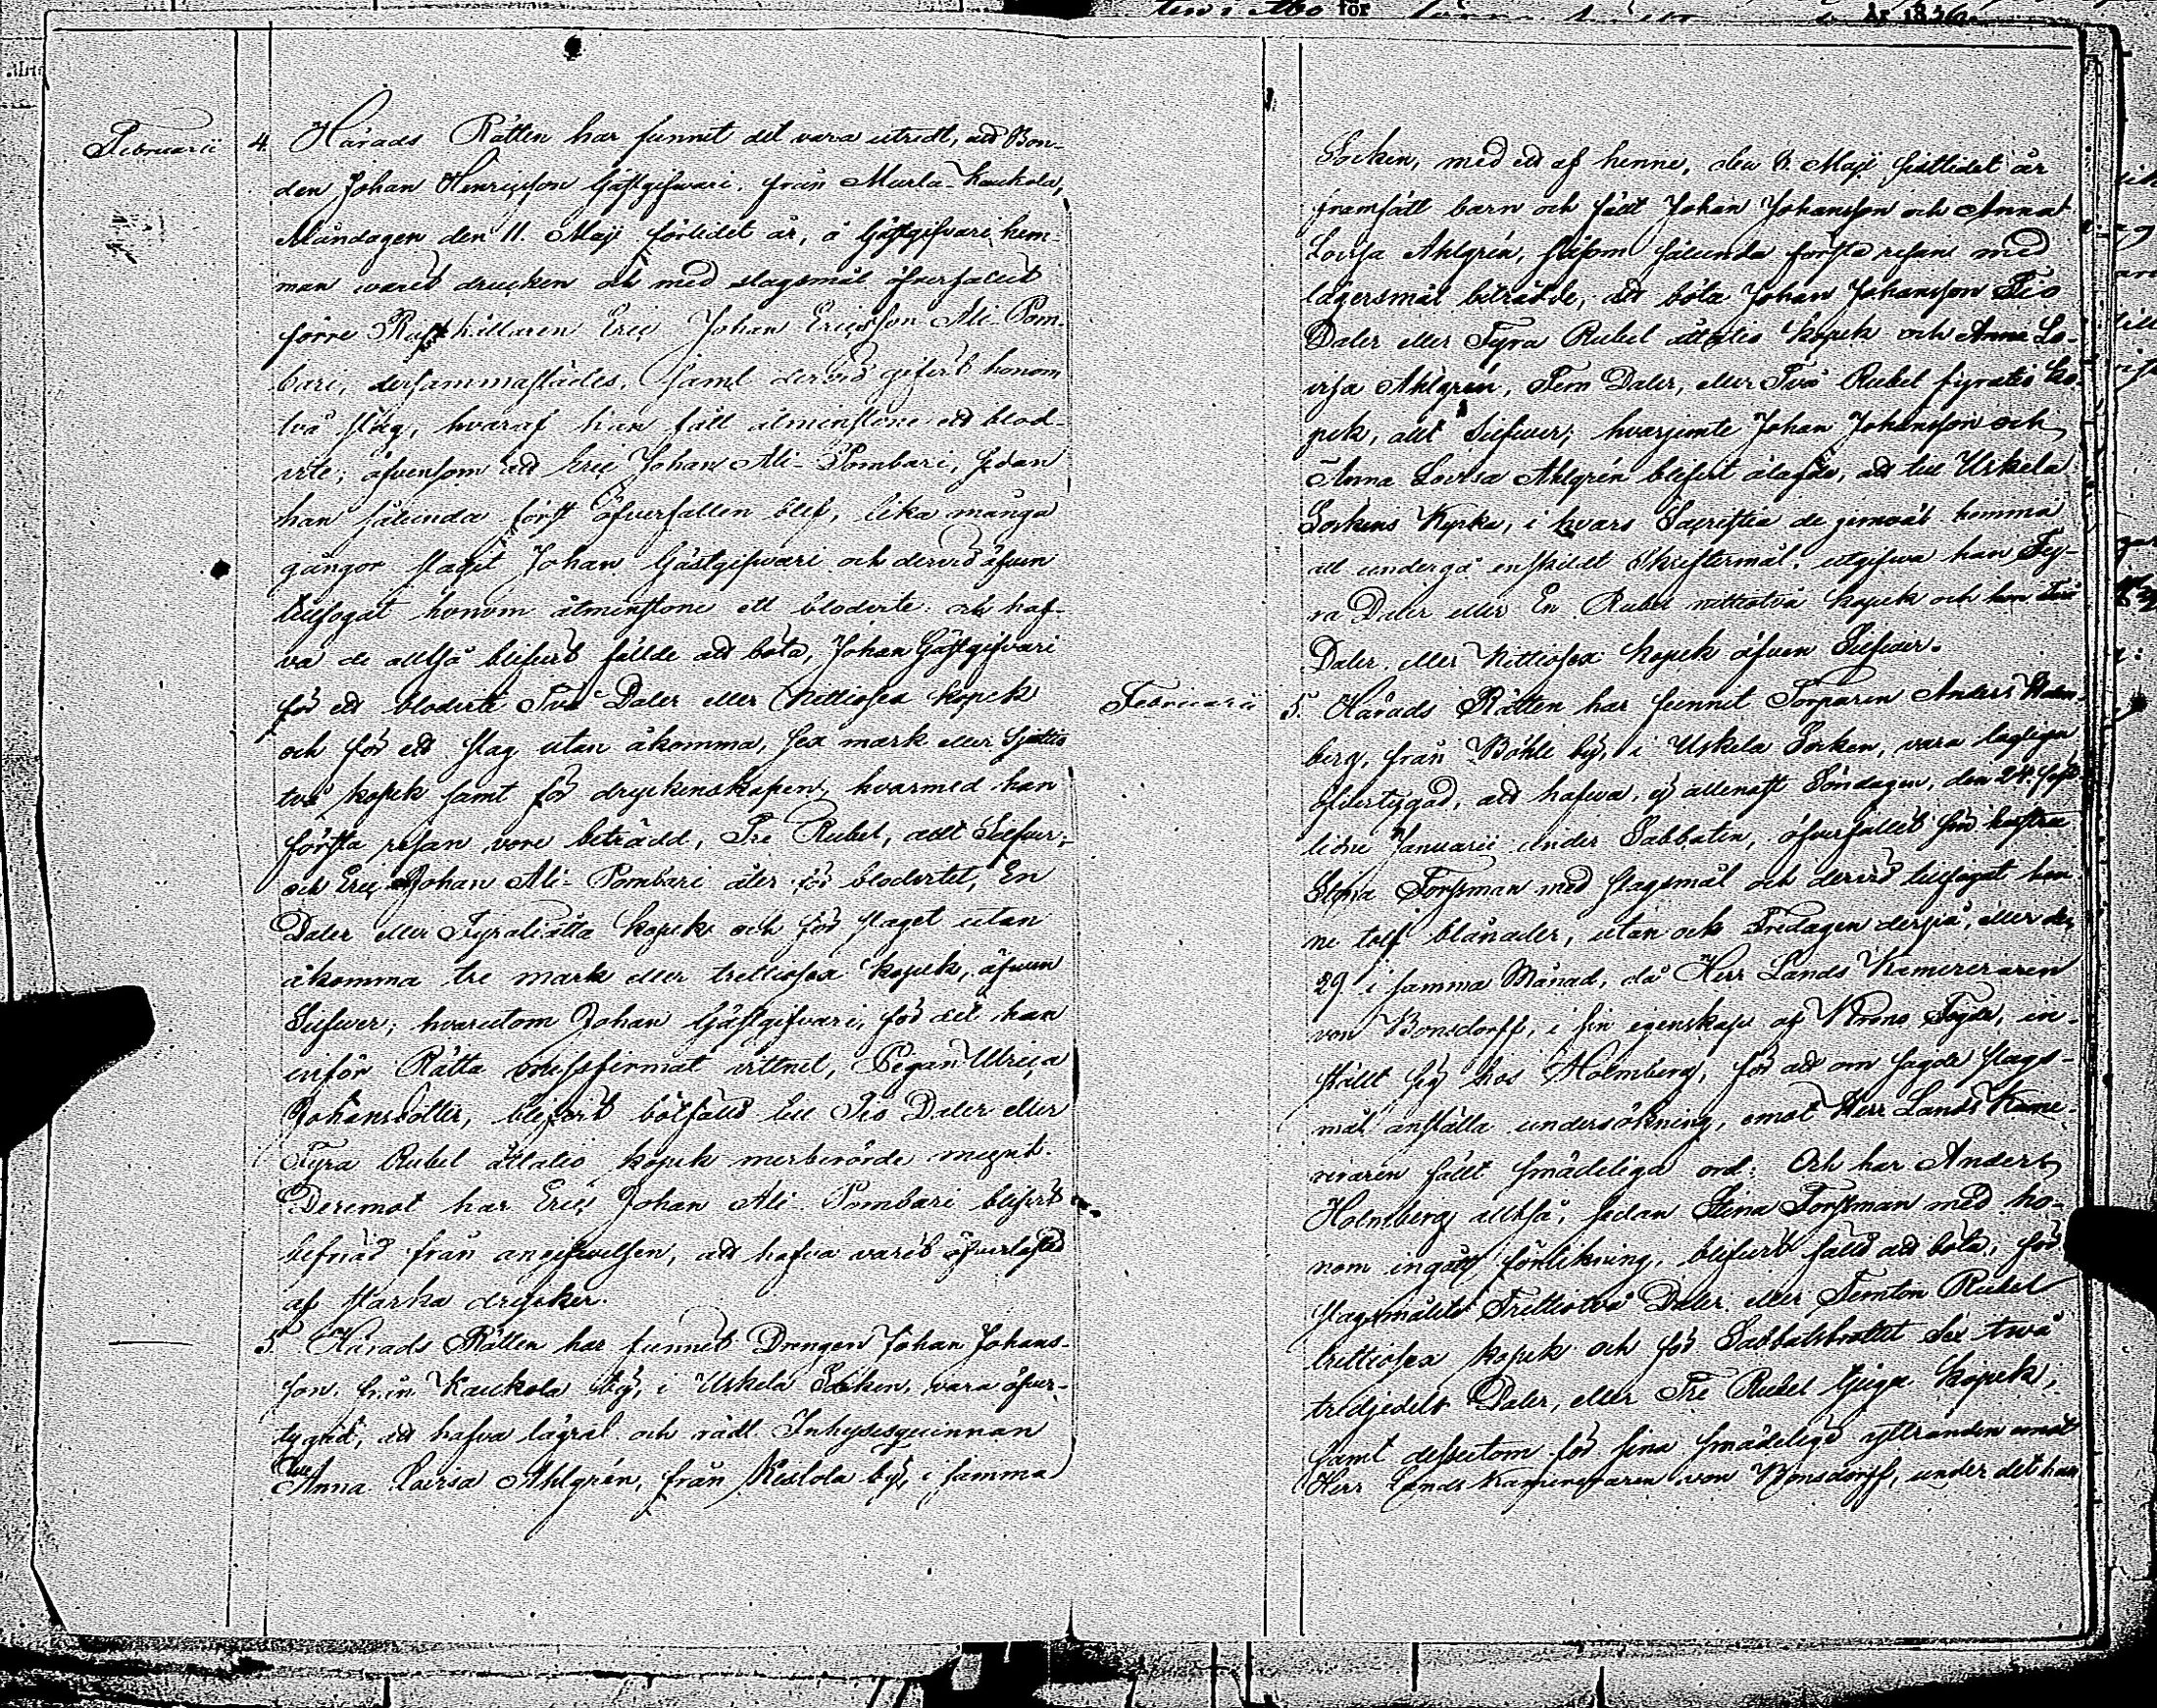 för År 1836.
Februarii 4. Härads Rätten har funnit det vara utredt, att Bon-
den Johan Henricsson Gästgifvari, från Murla-Kaukola,
Måndagen den 11. Maji förlidet år, å Gästgifvari hem-
man varit drucken och med slagsmål öfverfallit
förre Rusthållaren Eric Johan Ericsson Ali-Pom-
bari, dersammastädes, samt dervid gifvit honom
två slag, hvaraf han fått åtminstone ett blod-
vite; äfvensom att Eric Johan Ali-Pombari, sedan
han sålunda först öfverfallen blef, lika många
gångor slagit Johan Gästgifvari och dervid äfven
tillfogat honom åtminstone ett blodvite: och haf-
va de alltså blifvit fällde att böta, Johan Gästgifvari
för ett blodvite Två Daler eller Nittiosex kopek
och för ett slag utan åkomma, sex mark eller Sjuttio
två kopek samt för dryckenskapen, hvarmed han
första resan vore beträdd, Tre Rubel, allt Silfver;
och Eric Johan Ali-Pombari åter för blodvitet, En
Daler eller Fyratioåtta kopek och för slaget utan
åkomma tre mark eller trettiosex kopek, äfven
Silfver; hvarutom Johan Gästgifvari, för det han
inför Rätta missfirmat vittnet, Pigan Ulrica
Johansdotter, blifvit bötfälld till Tio Daler eller
Fyra Rubel åttatio kopek merberörde mynt.
Deremot har Eric Johan Ali-Pombari blifvit
befriad från angifvelsen, att hafva varit öfverlastad
af starka drycker.
5. Härads Rätten har funnit Drengen Johan Johans-
son, från Kaukola by, i Uskela Socken, vara öfver-
tygad, att hafva lägrat och rådt Inhysesqvinnan
Anna Lovisa Ahlgrén, från Kistola by, i samma
Socken, med ett af henne, den 8. Maji sistlidet år
framfödt barn och fällt Johan Johansson och Anna
Lovisa Ahlgrén, såsom sålunda första resan med
lägersmål beträdde, att böta Johan Johansson Tio
Daler eller Fyra Rubel åttatio kopek och Anna Lo-
visa Ahlgrén, Fem Daler, eller Två Rubel fyratio ko-
pek, allt Silfver; hvarjemte Johan Johansson och
Anna Lovisa Ahlgrén blifvit ålagde, att till Uskela
Sockens Kyrka, i hvars Sacristia de jemväl komma
att undergå enskildt Skriftermål, utgifva han Fy-
ra Daler eller En Rubel nittiotvå kopek och hon Två
Daler eller Nittiosex kopek äfven Silfver.
Februarii 5. Härads Rätten har funnit Torparen Anders Holm-
berg, från Böhle by, i Uskela Socken, vara lagligen
öfvertygad, att hafva, ej allenast Söndagen, den 24. sist-
lidne Januarii under Sabbaten, öfverfallit sin hustru
Stina Forssman med slagsmål och dervid tillfogat hen-
ne tolf blånader, utan ock Fredagen derpå, eller den
29 i samma Månad, då Herr Lands Kamereraren
von Bonsdorff, i sin egenskap af Krono Fogde, in-
ställt sig hos Holmberg, för att om sagde slags-
mål anställa undersökning, emot Herr Lands Kame-
reraren fällt smädeliga ord: Och har Anders
Holmberg alltså, sedan Stina Forssman med ho-
nom ingått förlikning, blifvit fälld att böta, för
slagsmålet Trettiotvå Daler eller Femton Rubel
trettiosex kopek och för Sabbatsbrottet Sex två
tredjedels Daler, eller Tre Rubel tjugu kopek,
samt dessutom för sina smädelige yttranden emot
Herr Lands Kamereraren von Bonsdorff, under det han